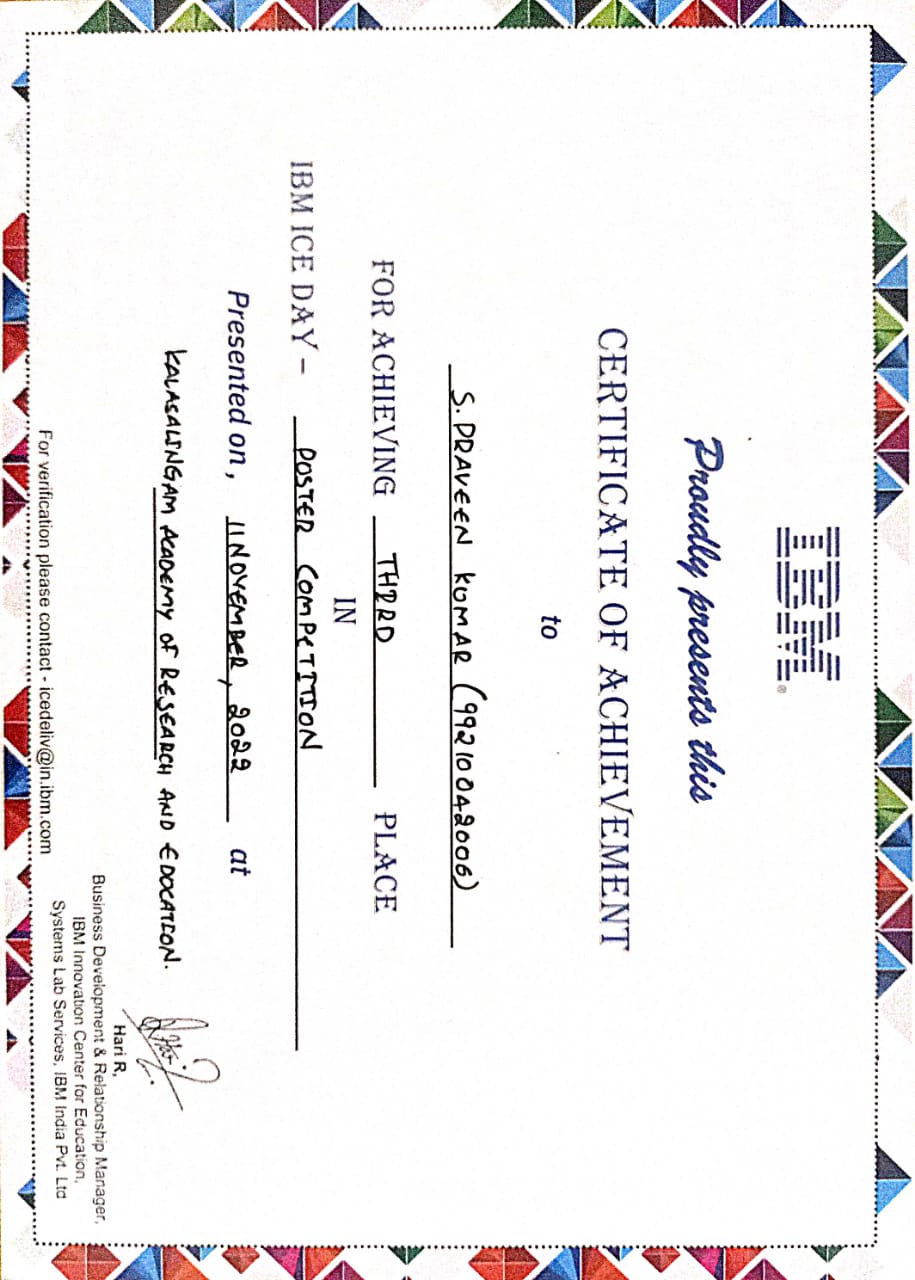 IBM®
Proudly presents this
CERTIFICATE OF ACHIEVEMENT
to
S. PRAVEEN KUMAR (99210042006)
FOR ACHIEVING THIRD PLACE
IN
IBM ICE DAY – POSTER COMPETITION
Presented on, 11 NOVEMBER, 2022 at
KALASALINGAM ACADEMY OF RESEARCH AND EDUCATION.
Hari R,
Business Development & Relationship Manager,
IBM Innovation Center for Education,
Systems Lab Services, IBM India Pvt. Ltd
For verification please contact - icedeliv@in.ibm.com